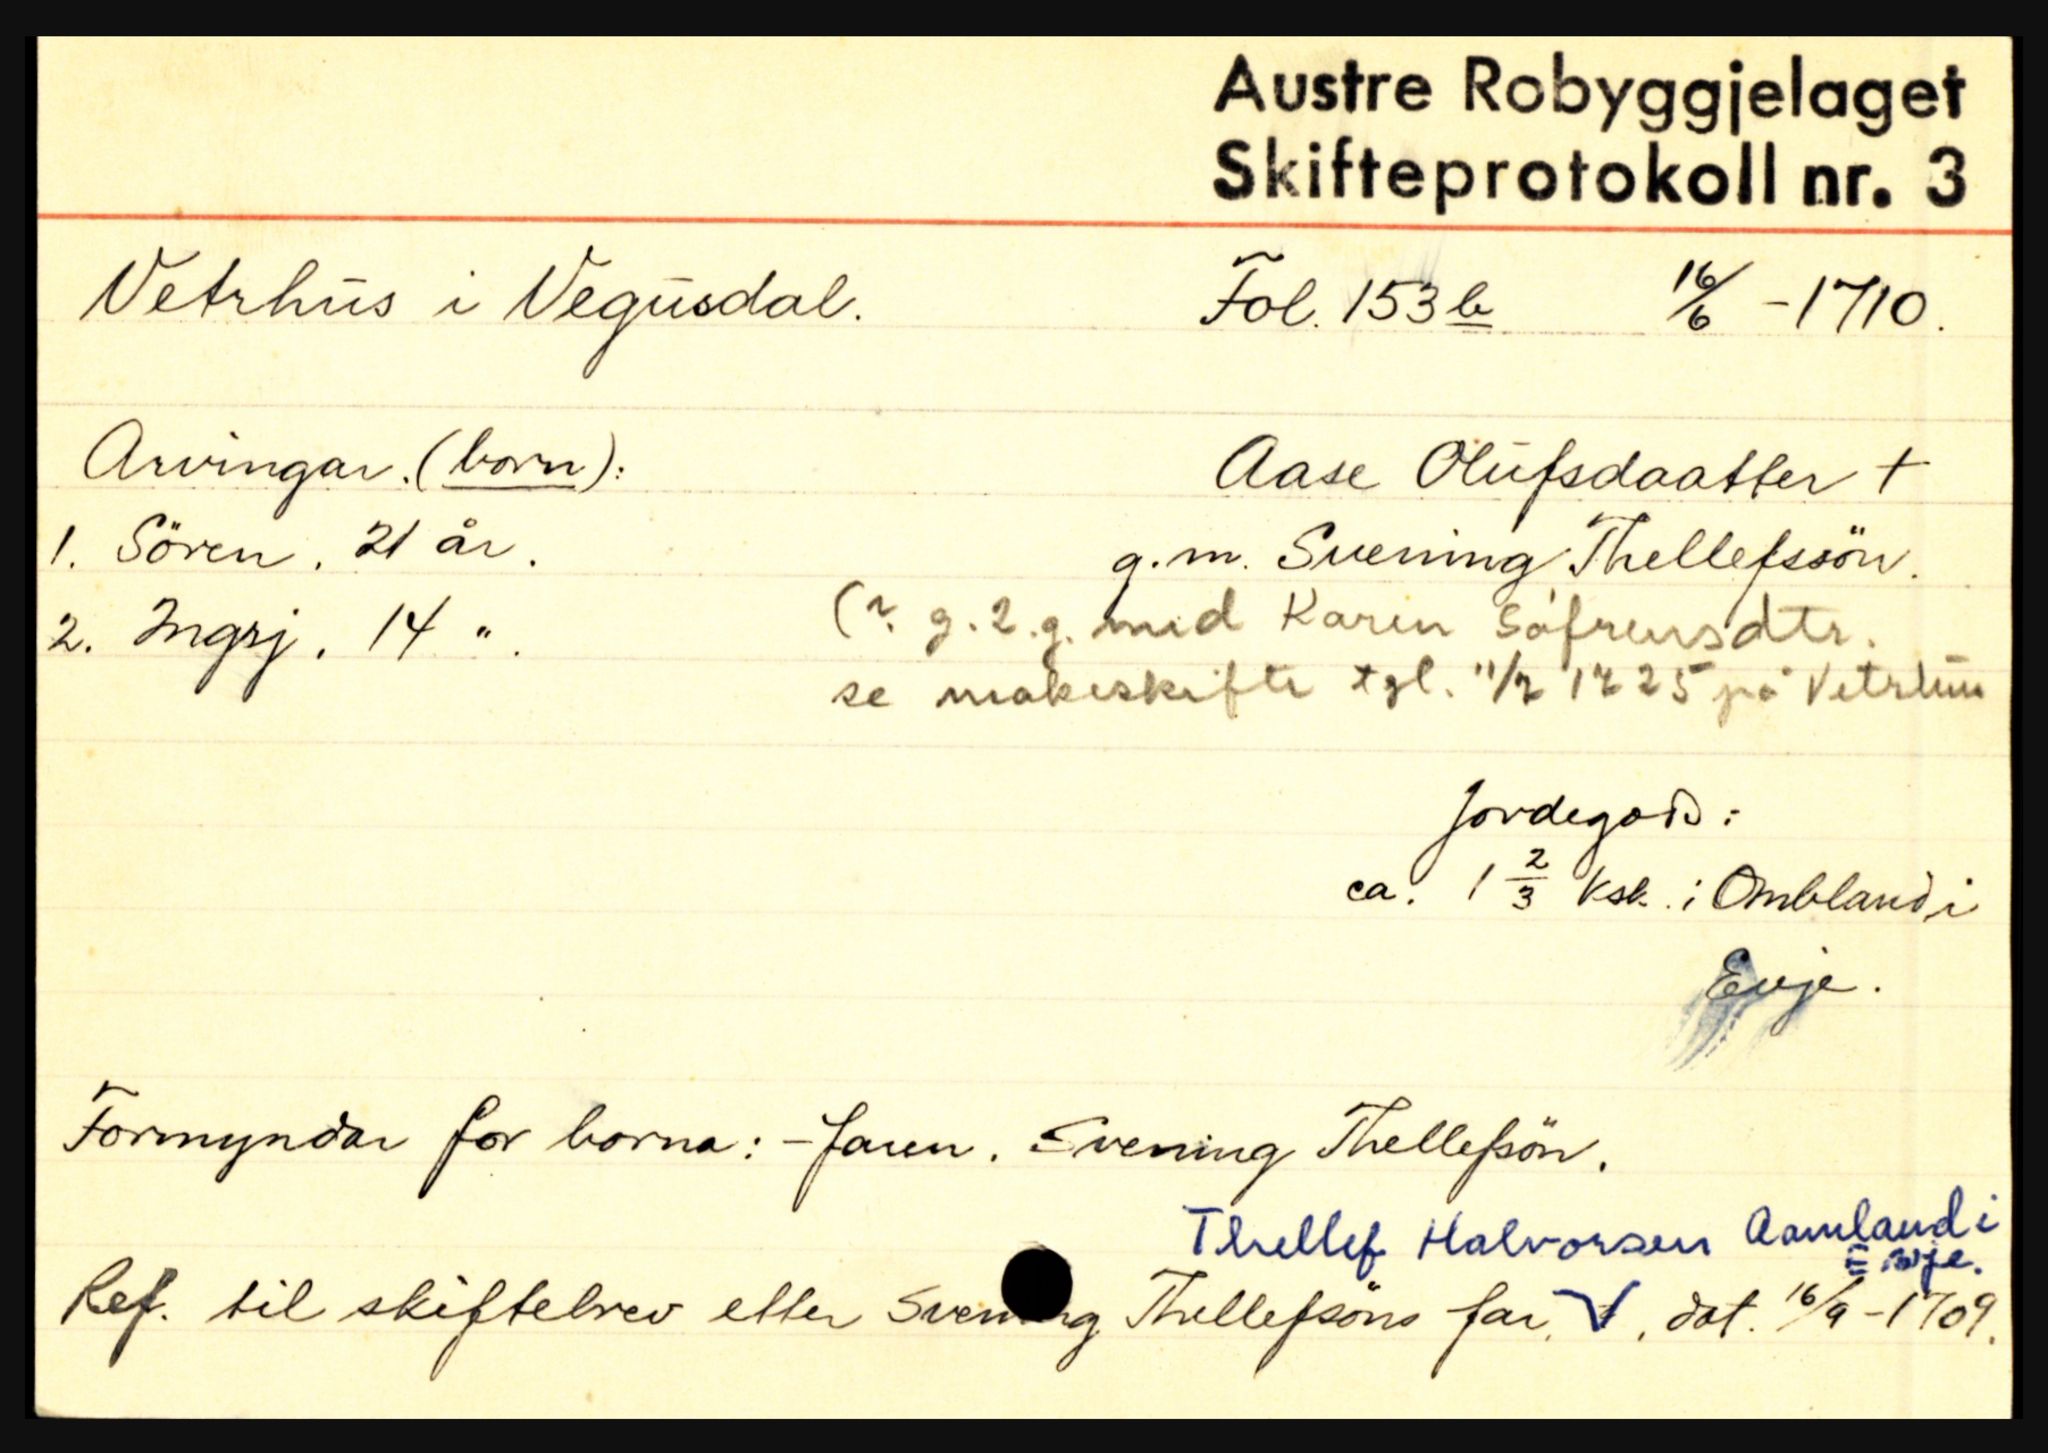 Austre Robyggjelaget
Skifteprotokoll nr. 3
Vetrhús i Vegúsdal. Fol. 153 b 16/6 - 1710.
Arvingar. (born): Aase Olúfsdaatter +
1. Sören. 21 år. g.m. Svening Thellefssön.
2. Ingrj. 14 ". (?. g. 2. g. med Karen Sófrensdtr.
se makeskifte tgl. 11/7 1725 på Vetrhús
Jordegods:
ca. 1 2/3 ksk. i Ombland i
Evje.
Formyndar for borna: - faren. Svening Thellefsön.
Thellef Halvorsen Aamland i
Evje.
Ref. til skiftebrev etter Svening Thellefsöns far, √, dat. 16/9 - 1709.